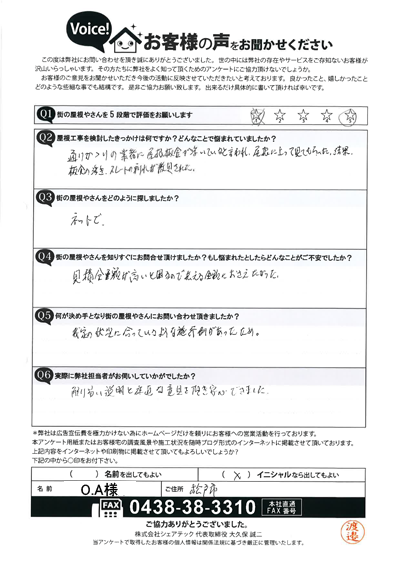 Voice!
お客様の声をお聞かせください
この度は弊社にお問い合わせを頂き誠にありがとうございました。世の中には弊社の存在やサービスをご存知ないお客様が
沢山いらっしゃいます。その方たちに弊社をよく知って頂くためのアンケートにご協力頂けないでしょうか。
お客様のご意見をお聞かせいただき今後の活動に反映させていただきたいと考えております。良かったこと、嬉しかったこと
どのような些細な事でも結構です。是非ご協力お願い致します。出来るだけ具体的に書いて頂ければ幸いです。
Q1 街の屋根やさんを5段階で評価をお願いします
Q2 屋根工事を検討したきっかけは何ですか?どんなことで悩まれていましたか?
通りがかりの業者に屋根板金が浮いていると言われ、屋根に上って見てもらった結果、
板金の浮き、スレートの割れが発見された。
Q3 街の屋根やさんをどのように探しましたか?
ネットで、
Q4 街の屋根やさんを知りすぐにお問合せ頂けましたか?もし悩まれたとしたらどんなことがご不安でしたか?
見積金額が高いと困るので
Q5 何が決め手となり街の屋根やさんにお問い合わせ頂きましたか?
の状況に合っている があったため。
Q6 実際に弊社担当者がお伺いしていかがでしたか?
説明と
＊弊社は広告宣伝費を極力かけない為にホームページだけを頼りにお客様への営業活動を行っております。
本アンケート用紙またはお客様宅の調査風景や施工状況を随時ブログ形式のインターネットに掲載させて頂いております。
上記内容をインターネットや印刷物に掲載させて頂いてもよろしいでしょうか?
下記の中から〇印をお付下さい。
( )名前を出してもよい ( × )イニシャルなら出してもよい
名前 O.A様 ご住所 松戸市
FAX 0438-38-3310 本社直通 FAX番号
ご協力ありがとうございました。
株式会社シェアテック 代表取締役 大久保 誠二
当アンケートで取得したお客様の個人情報は関係法規に基づき厳正に管理いたします。
渡邉